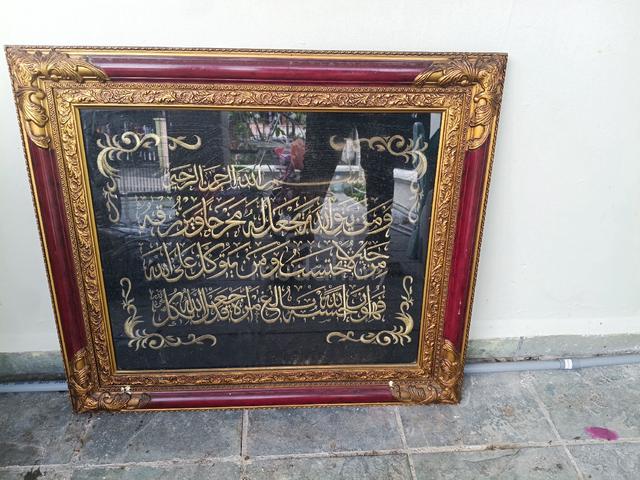 بسم الله الرحمن الرحيم
ومن يتق الله يجعل له مخرجا ويرزقه
من حيث لا يحتسب ومن يتوكل على الله
فهو حسبه ان الله بالغ امره قد جعل الله لكل